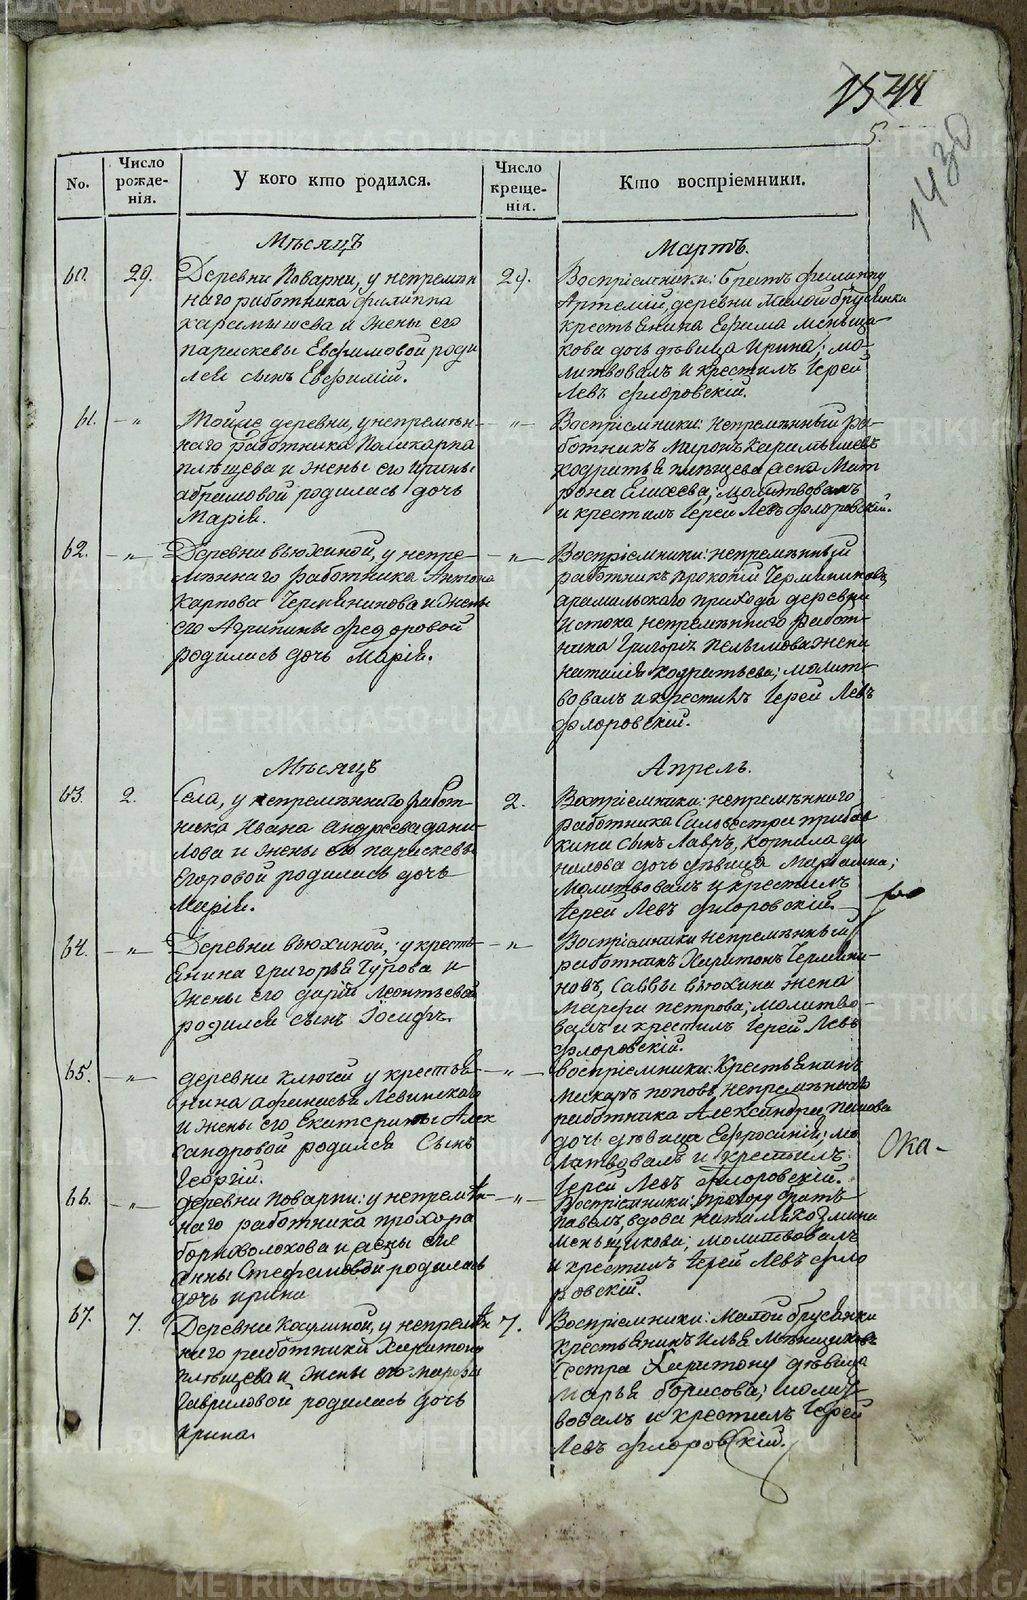 1548
5.
1430
No.
Число рожде-нія.
У кого кто родился.
Число креще-нія.
Кто воспріемники.
Мѣсяцъ
Мартъ.
60.
29.
Деревни Поварни, у непремѣн
наго работника Филиппа
Карамышева и жены его
Парискевы Евфимовой роди
лся сынъ Евфимій.
29.
Воспріемники: братъ Филиппу
Артемій, деревни Малой Брусянки
крестьянина Ефима Меньща
кова дочь дѣвица Ирина; мо-
литвовалъ и крестилъ Іерей
Левъ Флоровскій.
61.
— „
Тойже деревни, у непремѣн-
наго работника Поликарпа
Плѣщева и жены его Ирины
Абрамовой родилась дочь
Марія.
— „ —
Воспріемники: непремѣнный ра-
ботникъ Миронъ Карамышевъ
Кодратья Плѣщева жена Мат
рона Елисева; молитвовалъ
и крестилъ Іерей Левъ Флоровскій.
62.
— „ —
Деревни Вьюхиной, у непре-
мѣннаго работника Антона
Карпова Чермянинова и жены
его Агрипины Федоровой
родилась дочь Марія.
— „ —
Воспріемники: непремѣнный
работникъ Прокопій Чермяниновъ
Арамильскаго прихода деревни
Истока непремѣннаго работ-
ника Григорія Пелымова жена
Наталія Кодратьева; молит-
вовалъ и крестилъ Іерей Левъ
Флоровскій.
Мѣсяцъ
Апрель.
63.
2.
Села, у непремѣннаго работ-
ника Ивана Андреева Дани-
лова и жены его Парискевы
Егоровой родилась дочь
Марія.
2.
Воспріемники: непремѣннаго
работника Сильвестра
сынъ Лавръ, Корнила Да
нилова дочь дѣвица Маріанна;
молитвовалъ и крестилъ
Іерей Левъ Флоровскій.
64.
— „ —
Деревни Вьюхиной, у кресть-
янина Григорья Гурова и
жены его Дарьи Леонтьевой
родился сынъ Іосифъ.
— „ —
Воспріемники непремѣнный
работникъ Харитонъ Чермяни-
новъ, Саввы Вьюхина жена
Марфа Петрова; молитво-
валъ и крестилъ Іерей Левъ
Флоровскій.
65.
— „ —
деревни Ключей у крестья-
нина Афанасья Левинскаго
и жены его Екатерины Алек
сандровой родился Сынъ
Георгій.
— „ —
Воспріемники: Крестьянинъ
Поповъ, непремѣннаго
работника Александра Попова
дочь дѣвица Ефросинія; мо
литвовалъ и крестилъ
Іерей Левъ Флоровскій.
Ока-
66.
— „ —
деревни Поварни: у непремѣн
наго работника Прохора
Борноволокова и жены его
Анны Стефановой родилась
дочь Ирина
— „ —
Воспріемники: Прохору братъ
Павелъ, вдова Наталья Козмина
Меньщикова; молитвовалъ
и крестилъ Іерей Левъ Фло
ровскій.
67.
7.
Деревни Кашиной, у непремѣн
наго работника Харитона
Плѣщева и жены его Марфы
Гавриловой родилась дочь
Ирина.
7.
Воспріемники: Малой Брусянки
крестьянинъ Илья Меньщиковъ
Сестра Харитону дѣвица
Марья Борисова; молит
вовалъ и крестилъ Іерей
Левъ Флоровскій.
METRIKI.GASO-URAL.RU